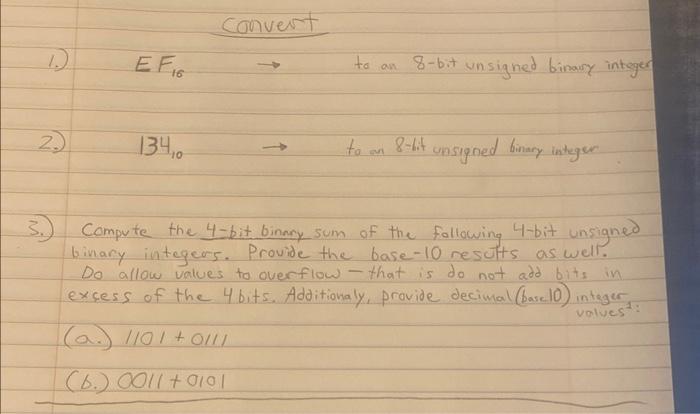 Convert
1.) EF₁₆ → to an 8-bit unsigned binary integer
2.) 134₁₀ → to an 8-bit unsigned binary integer
3.) Compute the 4-bit binary sum of the following 4-bit unsigned
binary integers. Provide the base-10 results as well.
Do allow values to overflow — that is do not add bits in
excess of the 4 bits. Additionaly, provide decimal (base 10) integer
values:
(a.) 1101 + 0111
(b.) 0011 + 0101